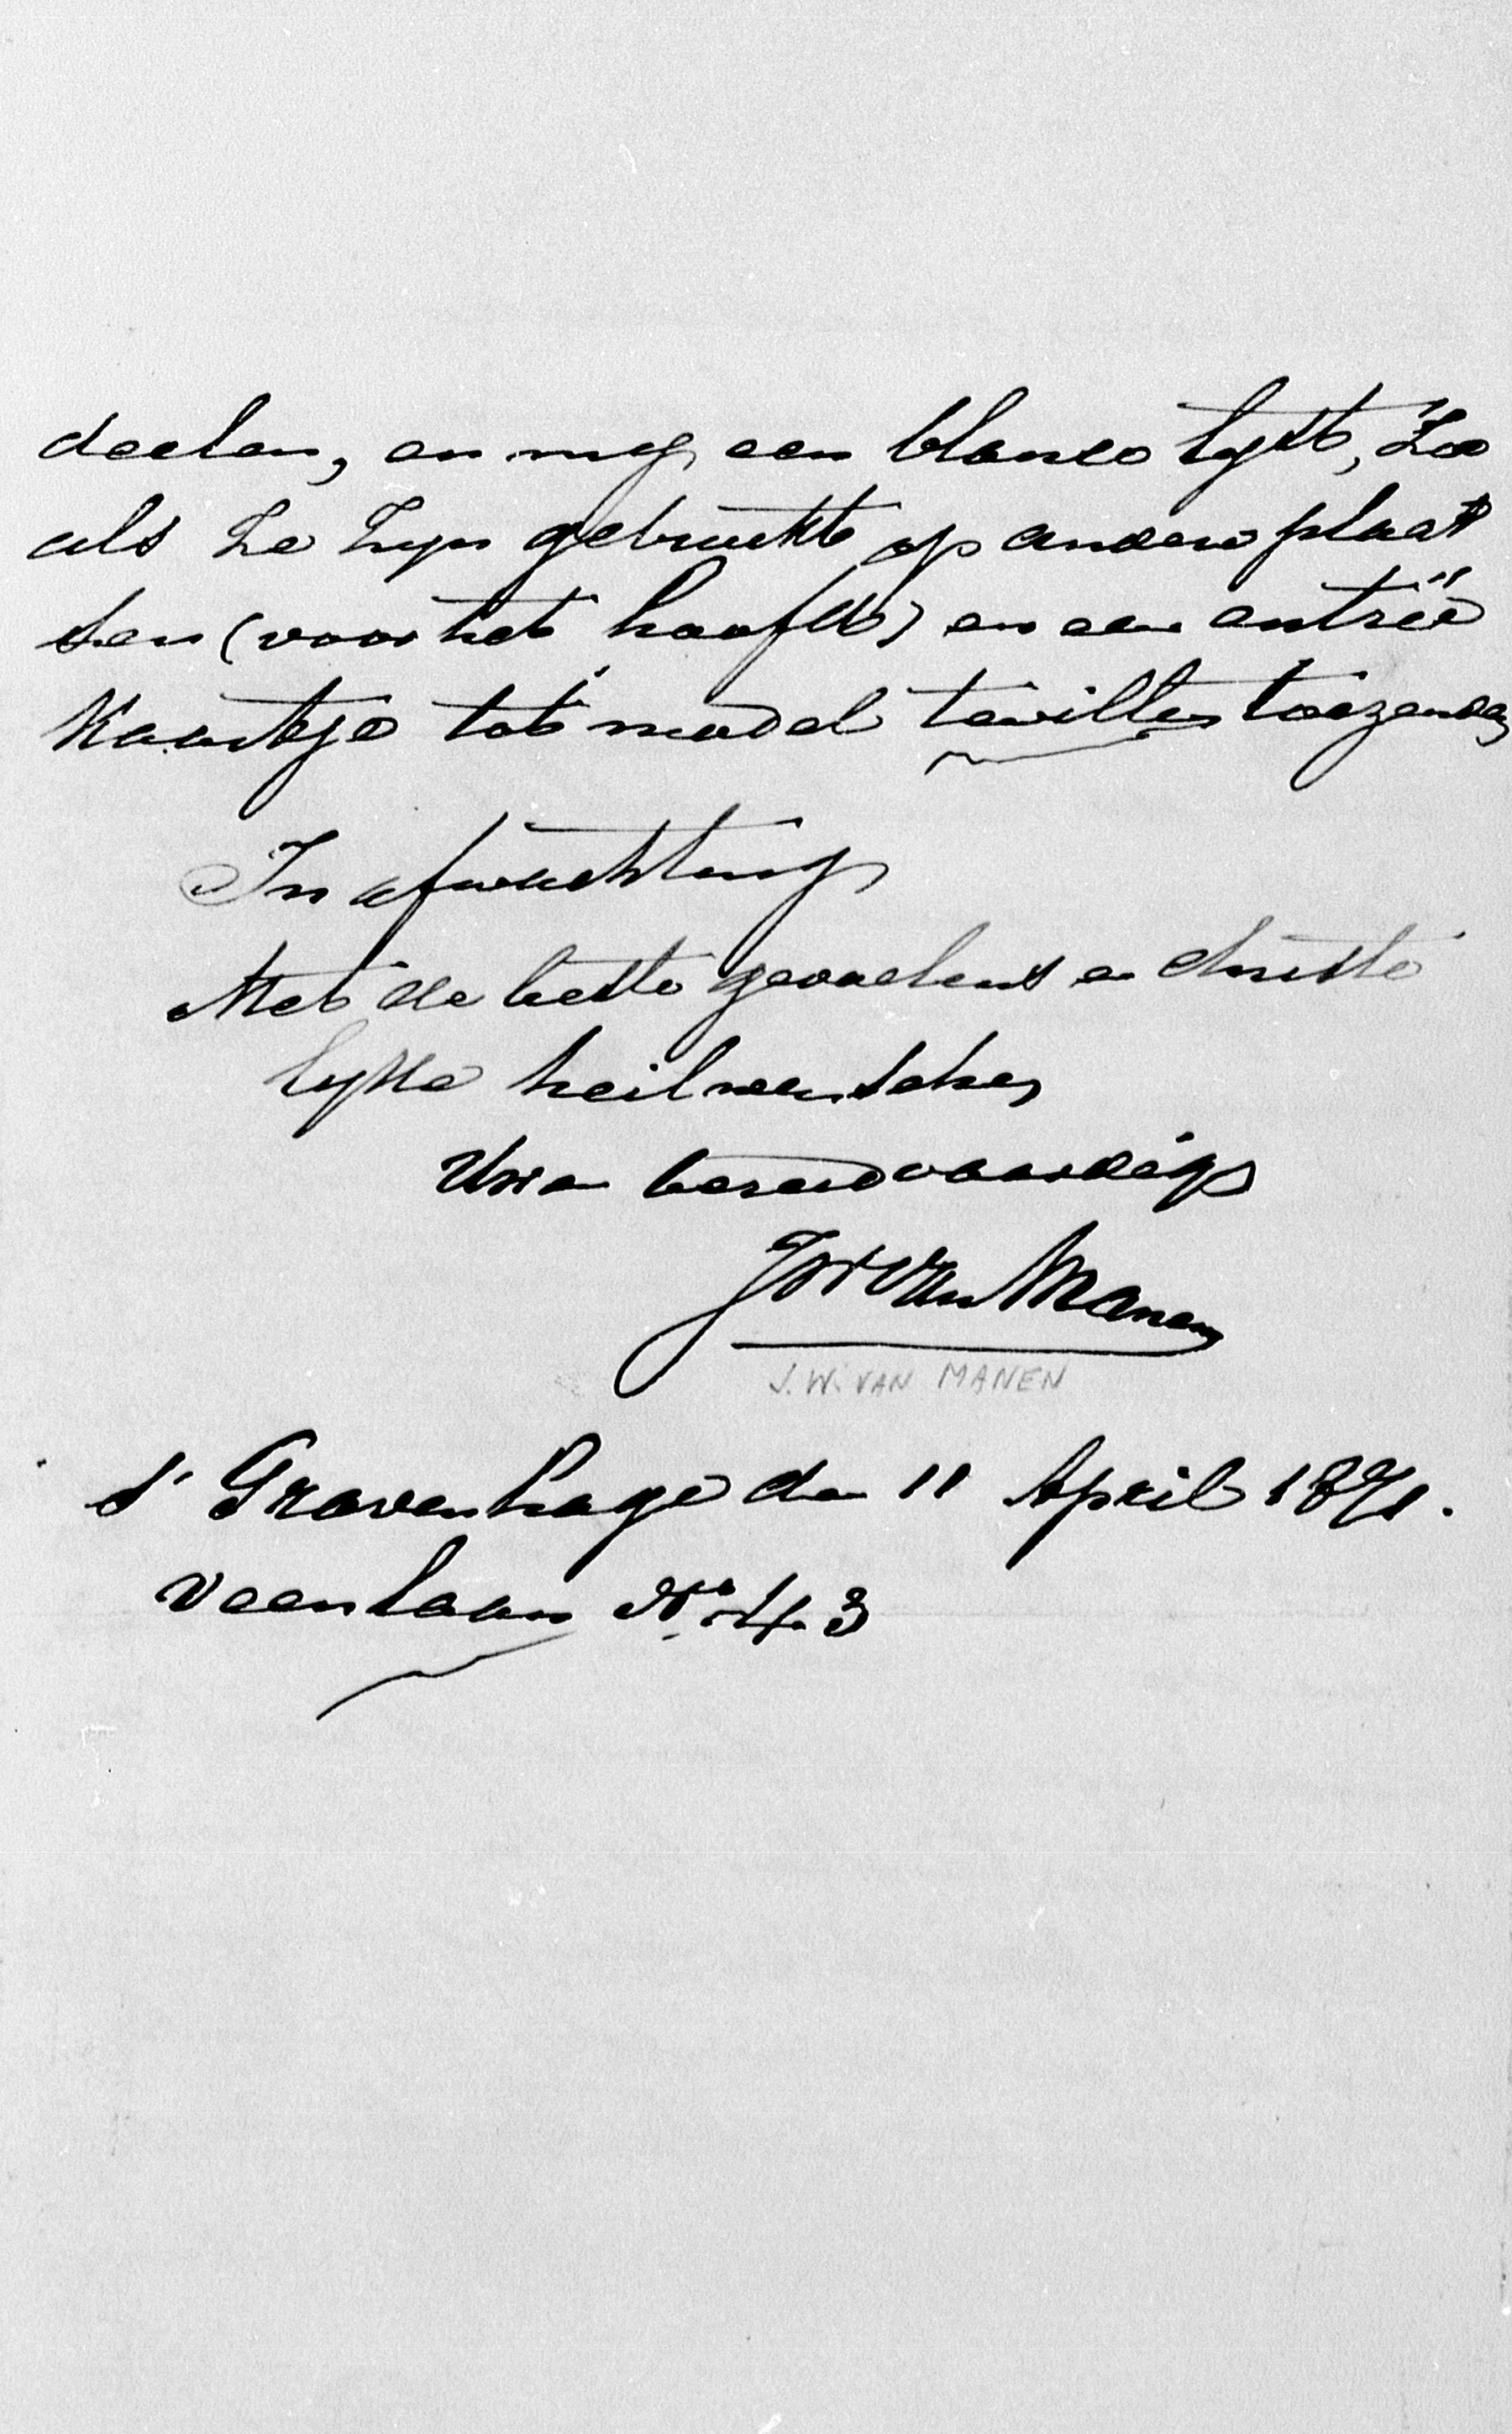 deelen, en my een blanco lyst, zoo
als ze zyn gebruikt op andere plaat
sen (voor het hoofd) en een entrëe
Kaartje tot model te willen toezenden
In afwachting
Met de beste gevoelens en christe
lyke heilwenschen
Uwen bereidvaardige
JW Van Manen
J.W. VAN MANEN
s' Gravenhage den 11 April 1871.
veenlaan No. 43